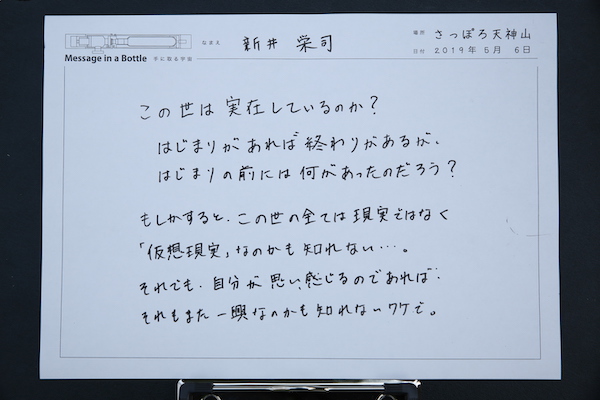 Message in a Bottle 手に取る宇宙
なまえ 新井 栄司
場所 さっぽろ天神山
日付 2019年 5月 6日
この世は実在しているのか?
はじまりがあれば終わりがあるが、
はじまりの前には何があったのだろう?
もしかすると、この世の全ては現実ではなく
「仮想現実」なのかも知れない…。
それでも、自分が思い感じるのであれば、
それもまた一興なのかも知れないワケで。